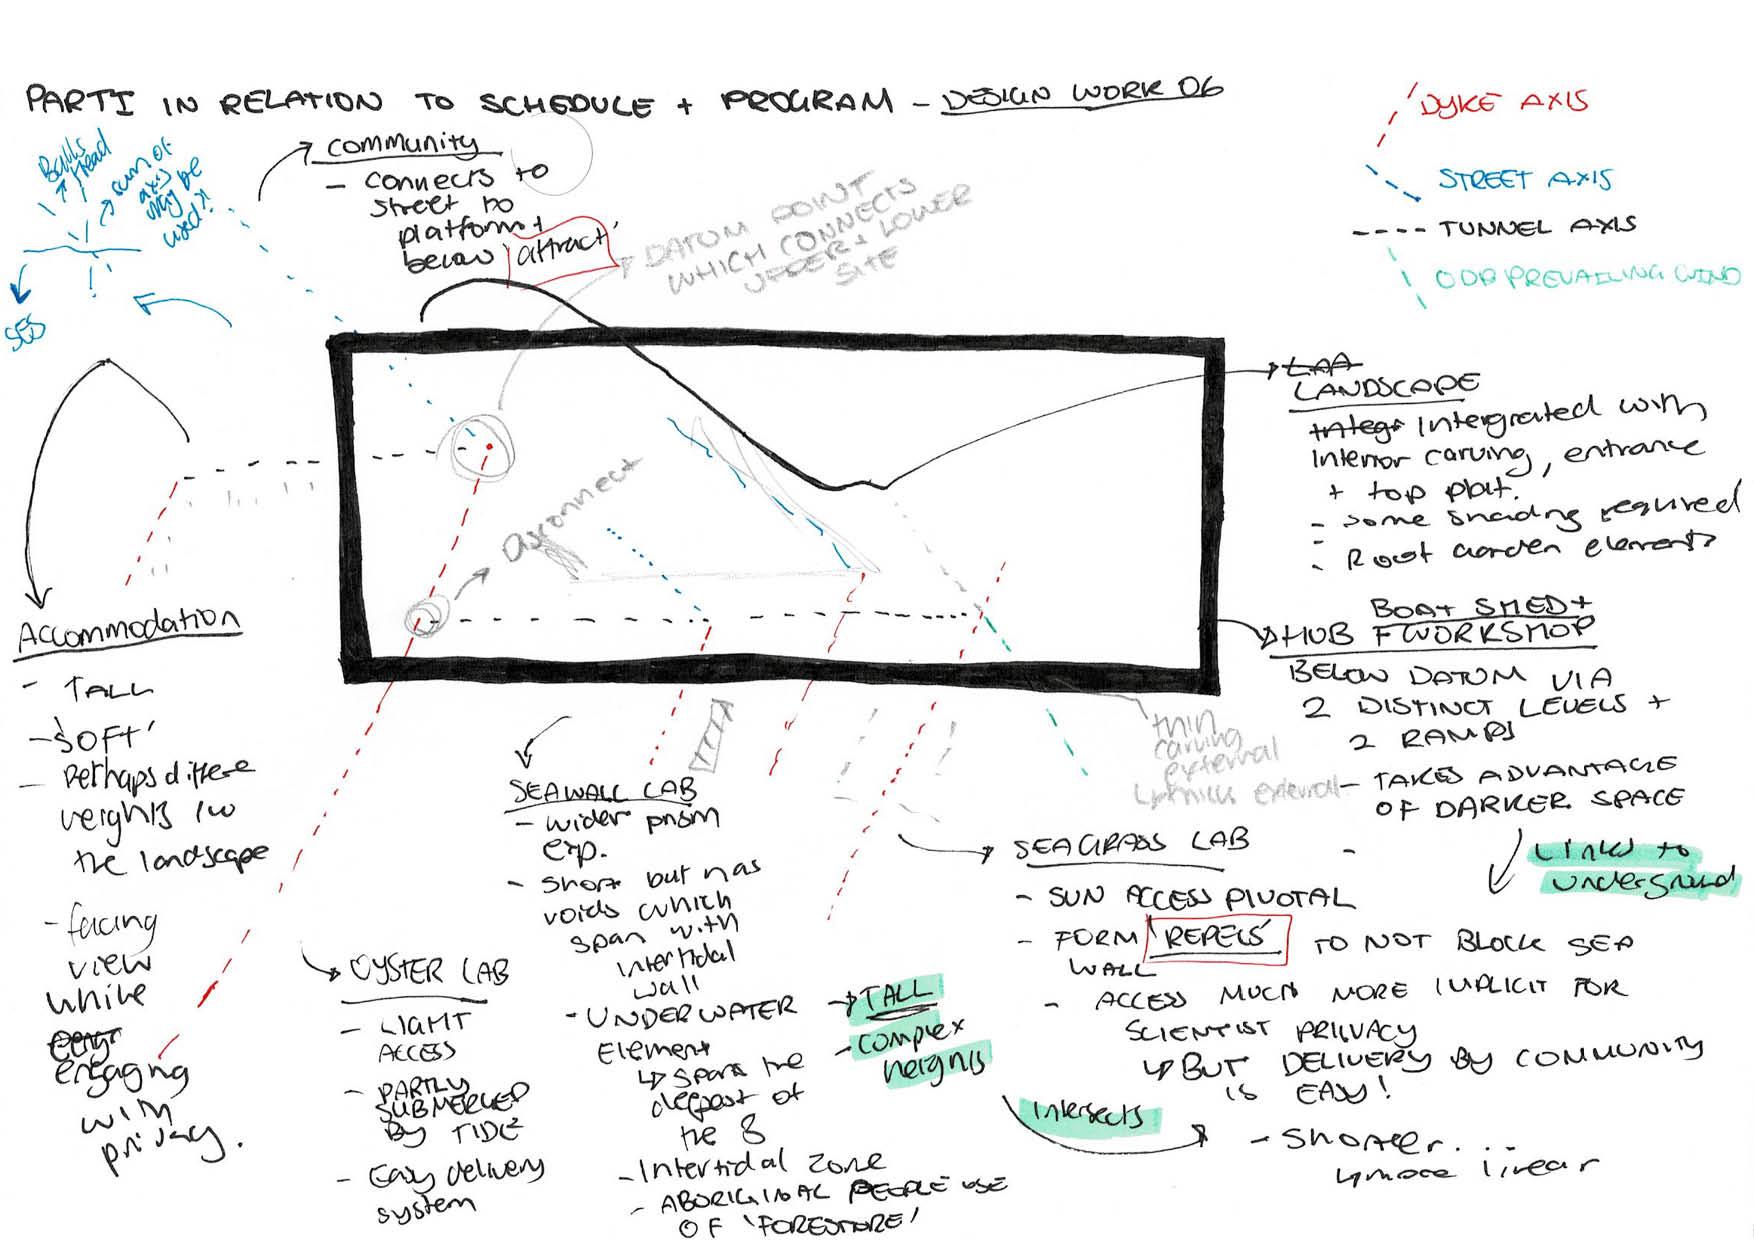 PARTI IN RELATION TO SCHEDULE + PROGRAM - DESIGN WORK 06
DYKE AXIS
STREET AXIS
TUNNEL AXIS
PREVAILING WIND
Balls
Head
sum of
axis
may be
used?!
SES
community
- connects to
street to
platform +
below 'attract'
DATUM POINT
WHICH CONNECTS
UPPER + LOWER
SITE
disconnect
LANDSCAPE
Intergrated with
interior carving, entrance
+ top plat.
- some shading required
- Roof garden elements
BOAT SHED +
HUB WORKSHOP
BELOW DATUM VIA
2 DISTINCT LEVELS +
2 RAMPS
- TAKES ADVANTAGE
OF DARKER SPACE
Links to
underground
thin
carving
external
external
Accommodation
- TALL
- 'SOFT'
- Perhaps differe
heights in
the landscape
- facing
view
while
engaging
with
privacy.
OYSTER LAB
- LIGHT
ACCESS
- PARTLY
SUBMERGED
BY TIDE
- Easy delivery
system
SEAWALL LAB
- wider prism
exp.
- short but has
voids which
span with
intertidal
wall
- UNDERWATER
Element
↳ spans the
deepest of
the 8
- Intertidal zone
- ABORIGINAL PEOPLE USE
OF 'FORESHORE'
→ TALL
- complex
heights
SEAGRASS LAB
- SUN ACCESS PIVOTAL
- FORM 'REPELS' TO NOT BLOCK SEA
WALL
- ACCESS MUCH MORE IMPLICIT FOR
SCIENTIST PRIVACY
↳ BUT DELIVERY BY COMMUNITY
IS EASY!
intersects
- shorter...
↳ more linear